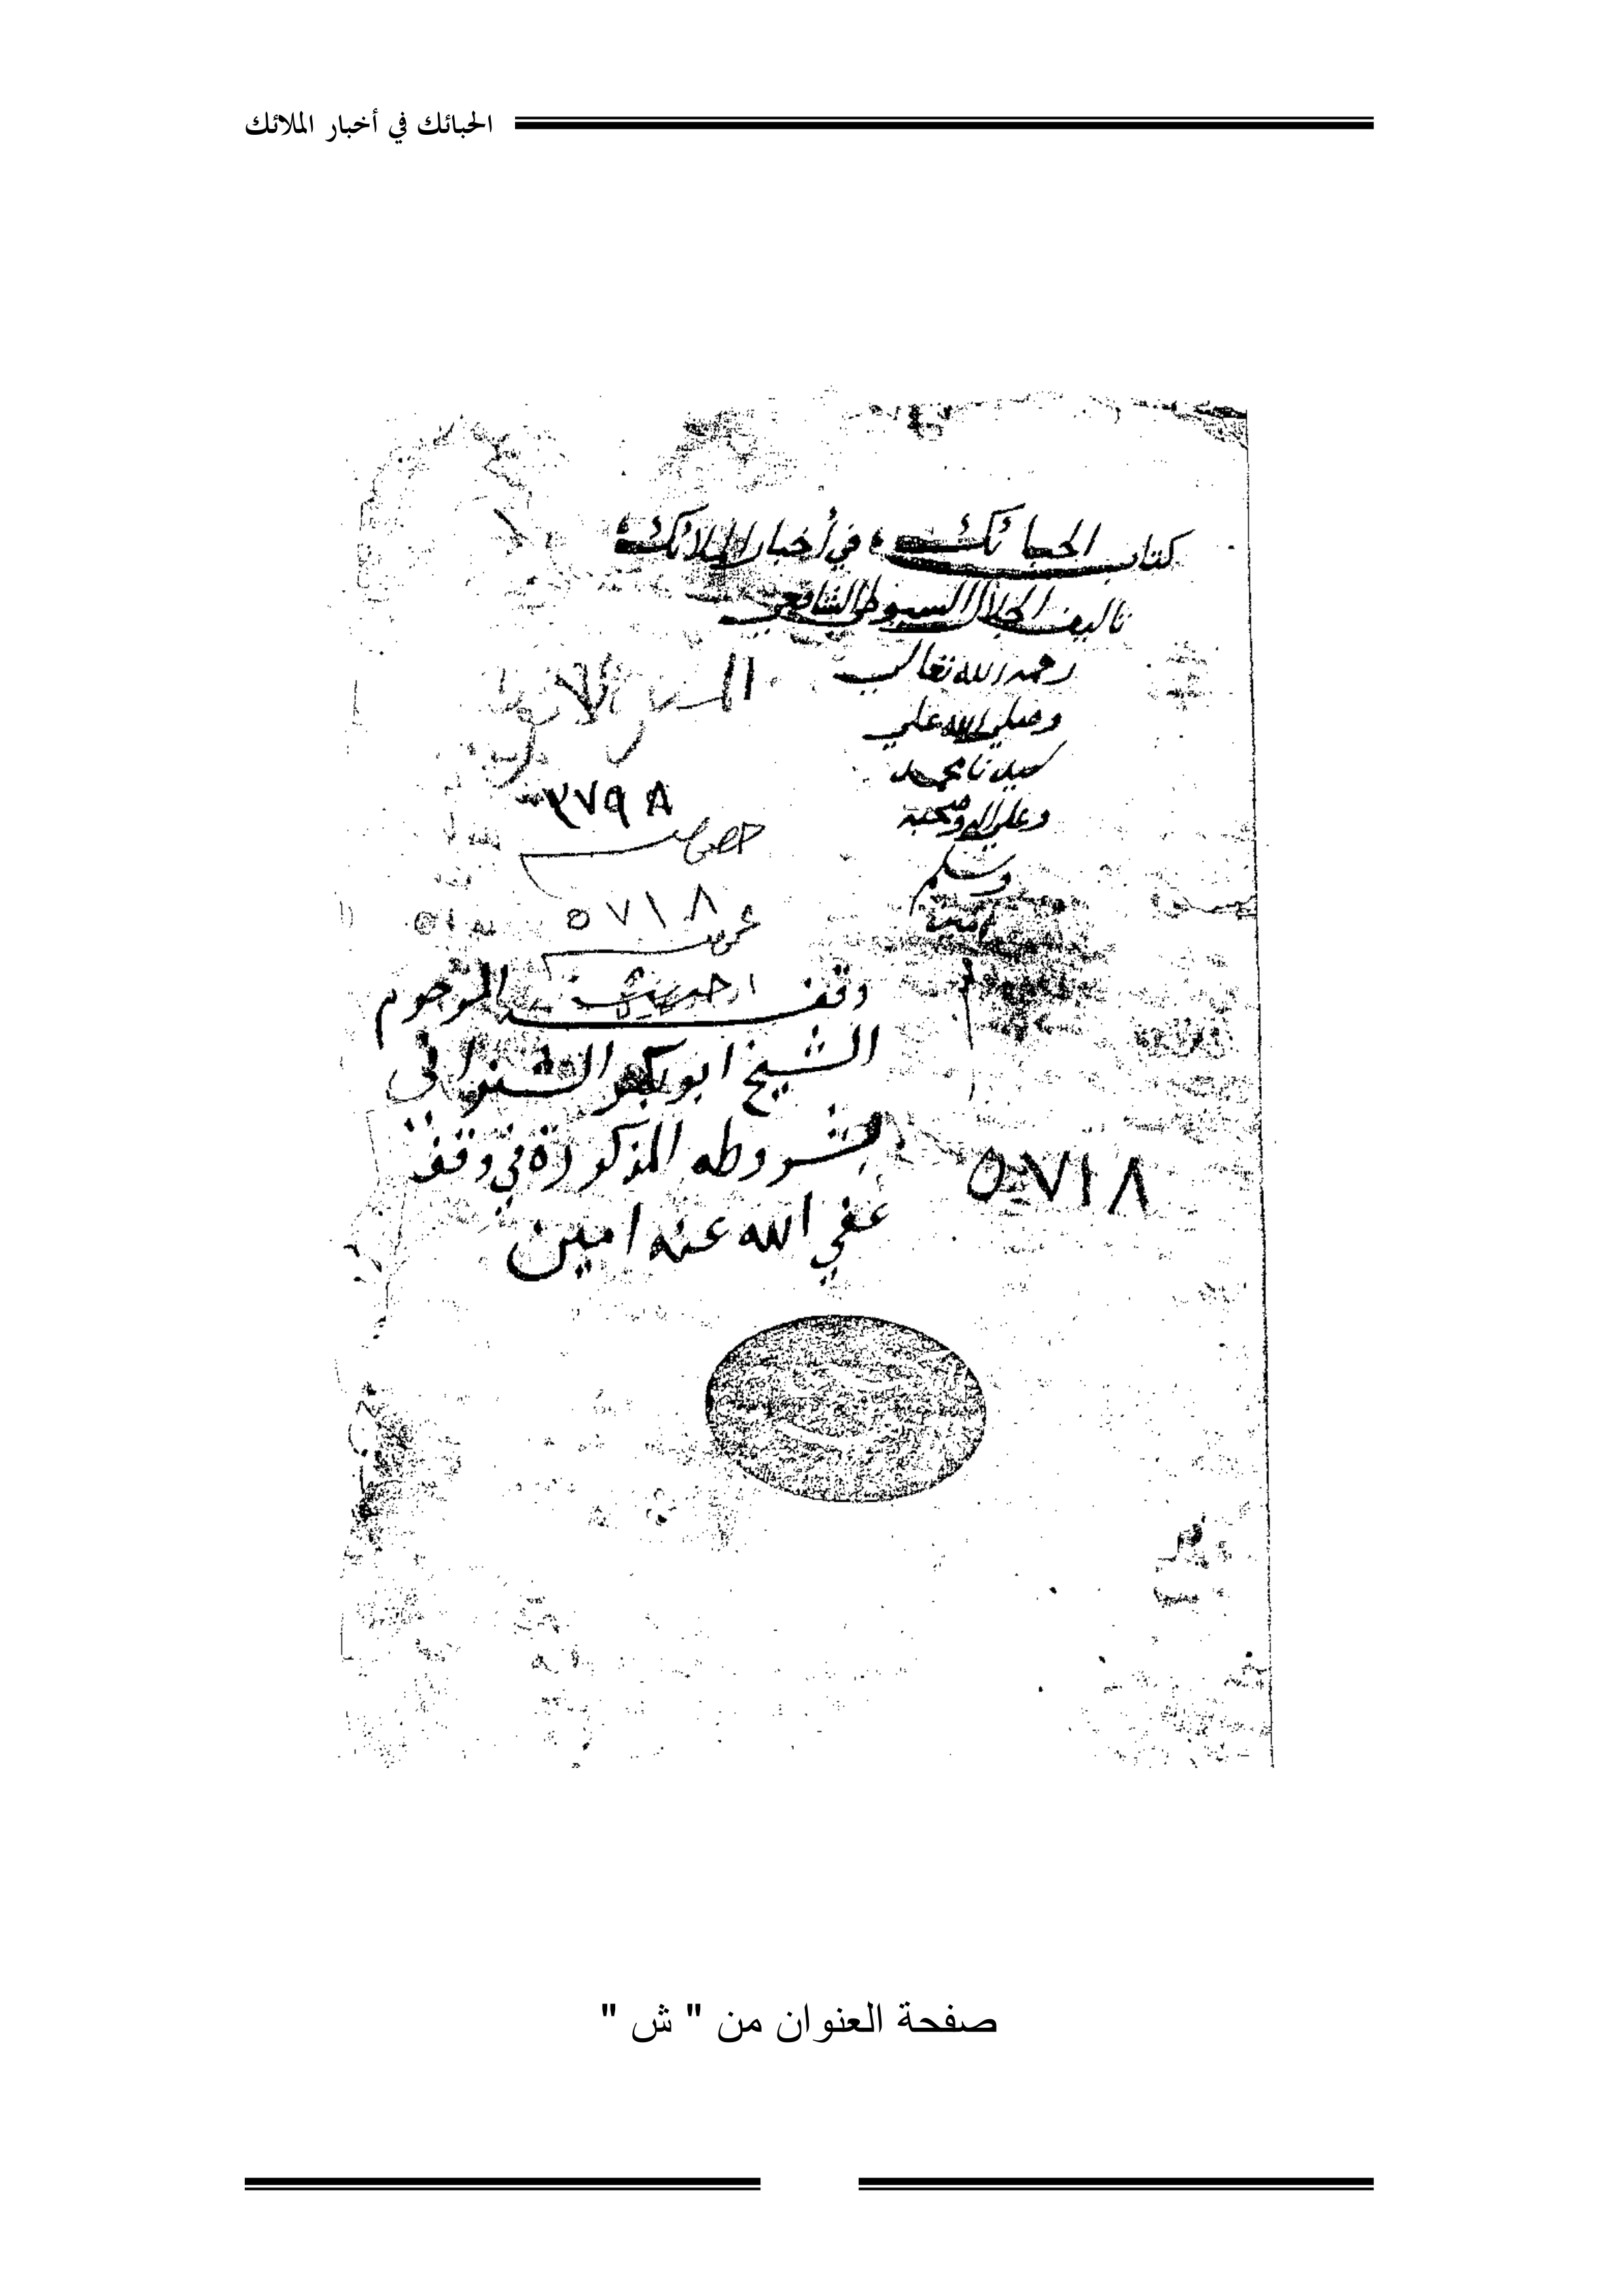 الحبائك في أخبار الملائك
كتاب الحبائك في أخبار الملائك
تاليف الجلال السيوطي الشافعي
رحمه الله تعالي
وصلي الله علي
سيدنا محمد
وعلي اله وصحبه
وسلم
امين
٣٧٩٨
خصوصيه
٥٧١٨
عموميه
وقف المرحوم
الشيخ ابو بكر الشنواني
بشروطه المذكورة في وقفه
عفي الله عنه امين
٥٧١٨
صفحة العنوان من " ش "